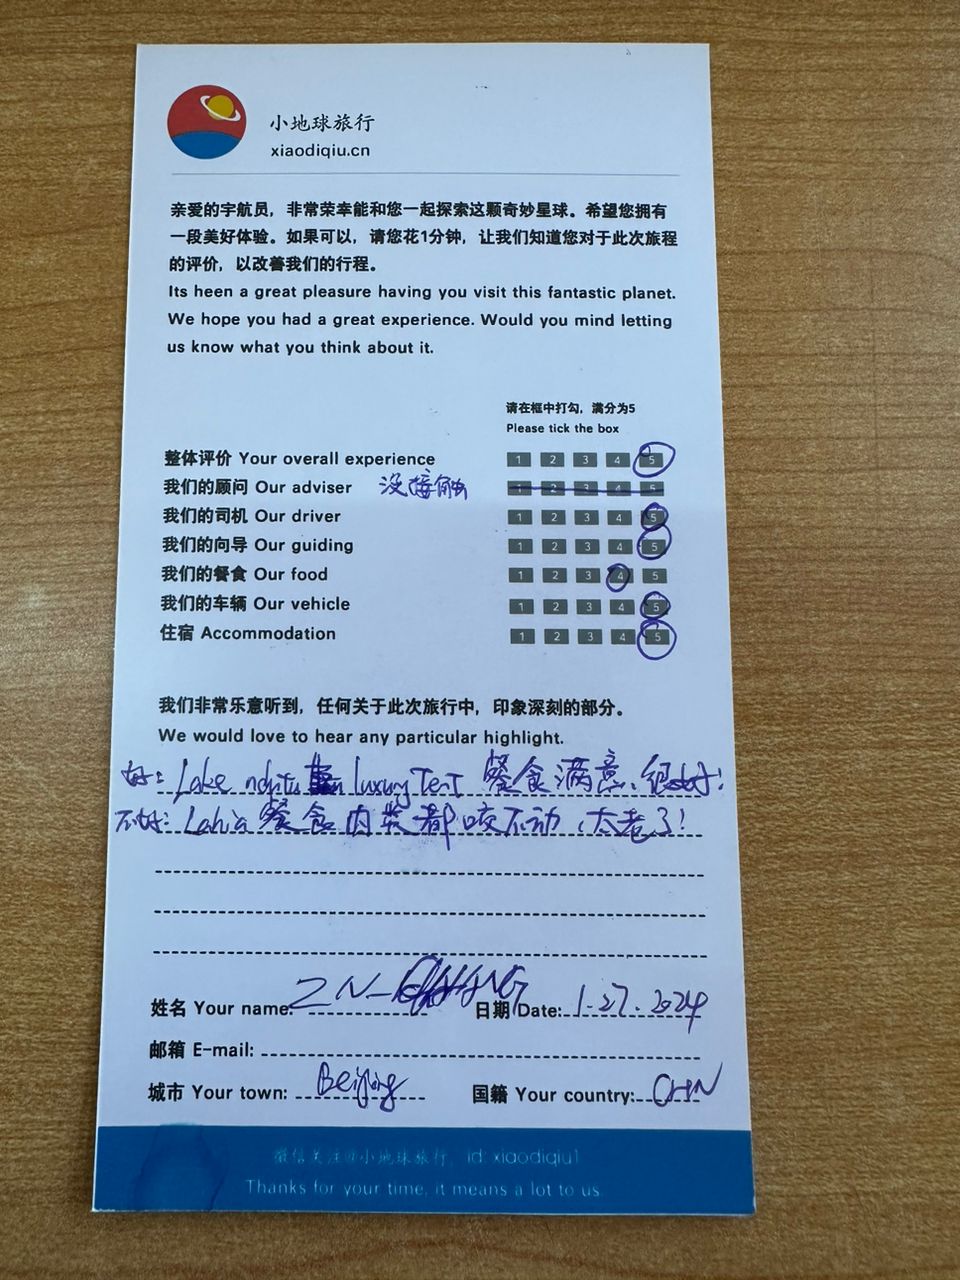 小地球旅行
xiaodiqiu.cn
亲爱的宇航员，非常荣幸能和您一起探索这颗奇妙星球。希望您拥有
一段美好体验。如果可以，请您花1分钟，让我们知道您对于此次旅程
的评价，以改善我们的行程。
Its heen a great pleasure having you visit this fantastic planet.
We hope you had a great experience. Would you mind letting
us know what you think about it.
请在框中打勾，满分为5
Please tick the box
整体评价 Your overall experience 1 2 3 4 5
我们的顾问 Our adviser 没接触 1 2 3 4 5
我们的司机 Our driver 1 2 3 4 5
我们的向导 Our guiding 1 2 3 4 5
我们的餐食 Our food 1 2 3 4 5
我们的车辆 Our vehicle 1 2 3 4 5
住宿 Accommodation 1 2 3 4 5
我们非常乐意听到，任何关于此次旅行中，印象深刻的部分。
We would love to hear any particular highlight.
好: Lake ndutu luxury Tent 餐食满意、很好!
不好: 餐食肉类都咬不动，太老了!
姓名 Your name: 日期 Date: 1.27.2024
邮箱 E-mail:
城市 Your town: Beijing 国籍 Your country: CHN
微信关注@小地球旅行，id: xiaodiqiu1
Thanks for your time, it means a lot to us.